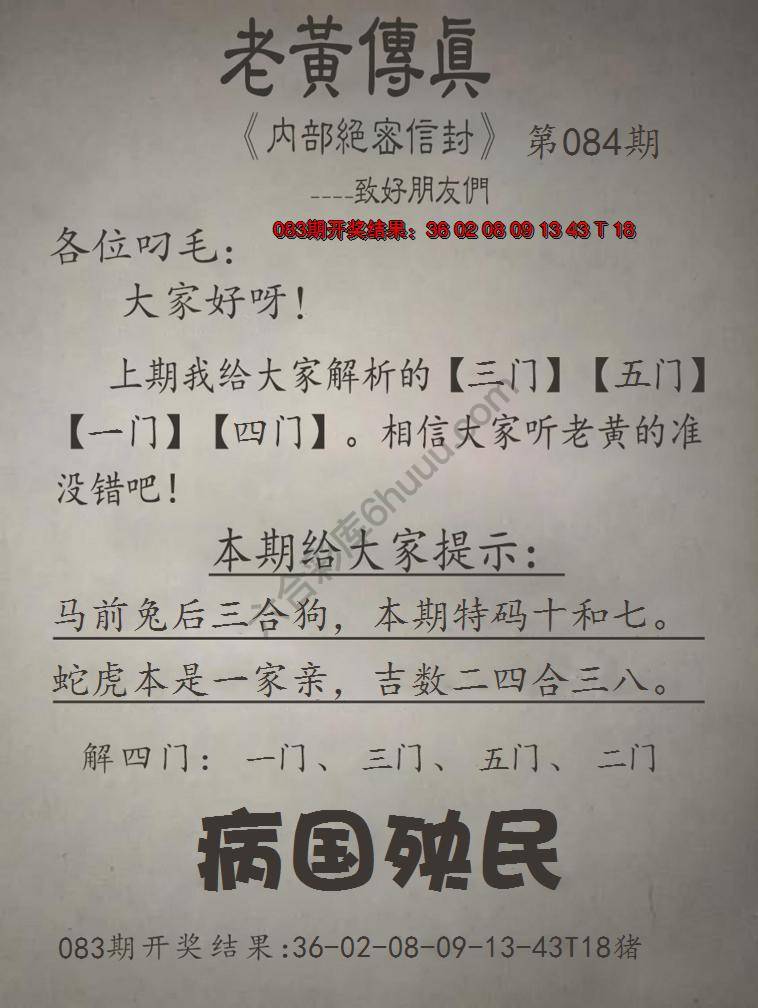 老黃傳眞
《内部絕密信封》 第084期
----致好朋友們
083期开奖结果：36 02 08 09 13 43 T 18
各位叼毛：
大家好呀！
上期我给大家解析的【三门】【五门】
【一门】【四门】。相信大家听老黄的准
没错吧！
本期给大家提示：
马前兔后三合狗，本期特码十和七。
蛇虎本是一家亲，吉数二四合三八。
解四门：一门、三门、五门、二门
病国殃民
083期开奖结果:36-02-08-09-13-43T18猪
六合彩库6huuu.com